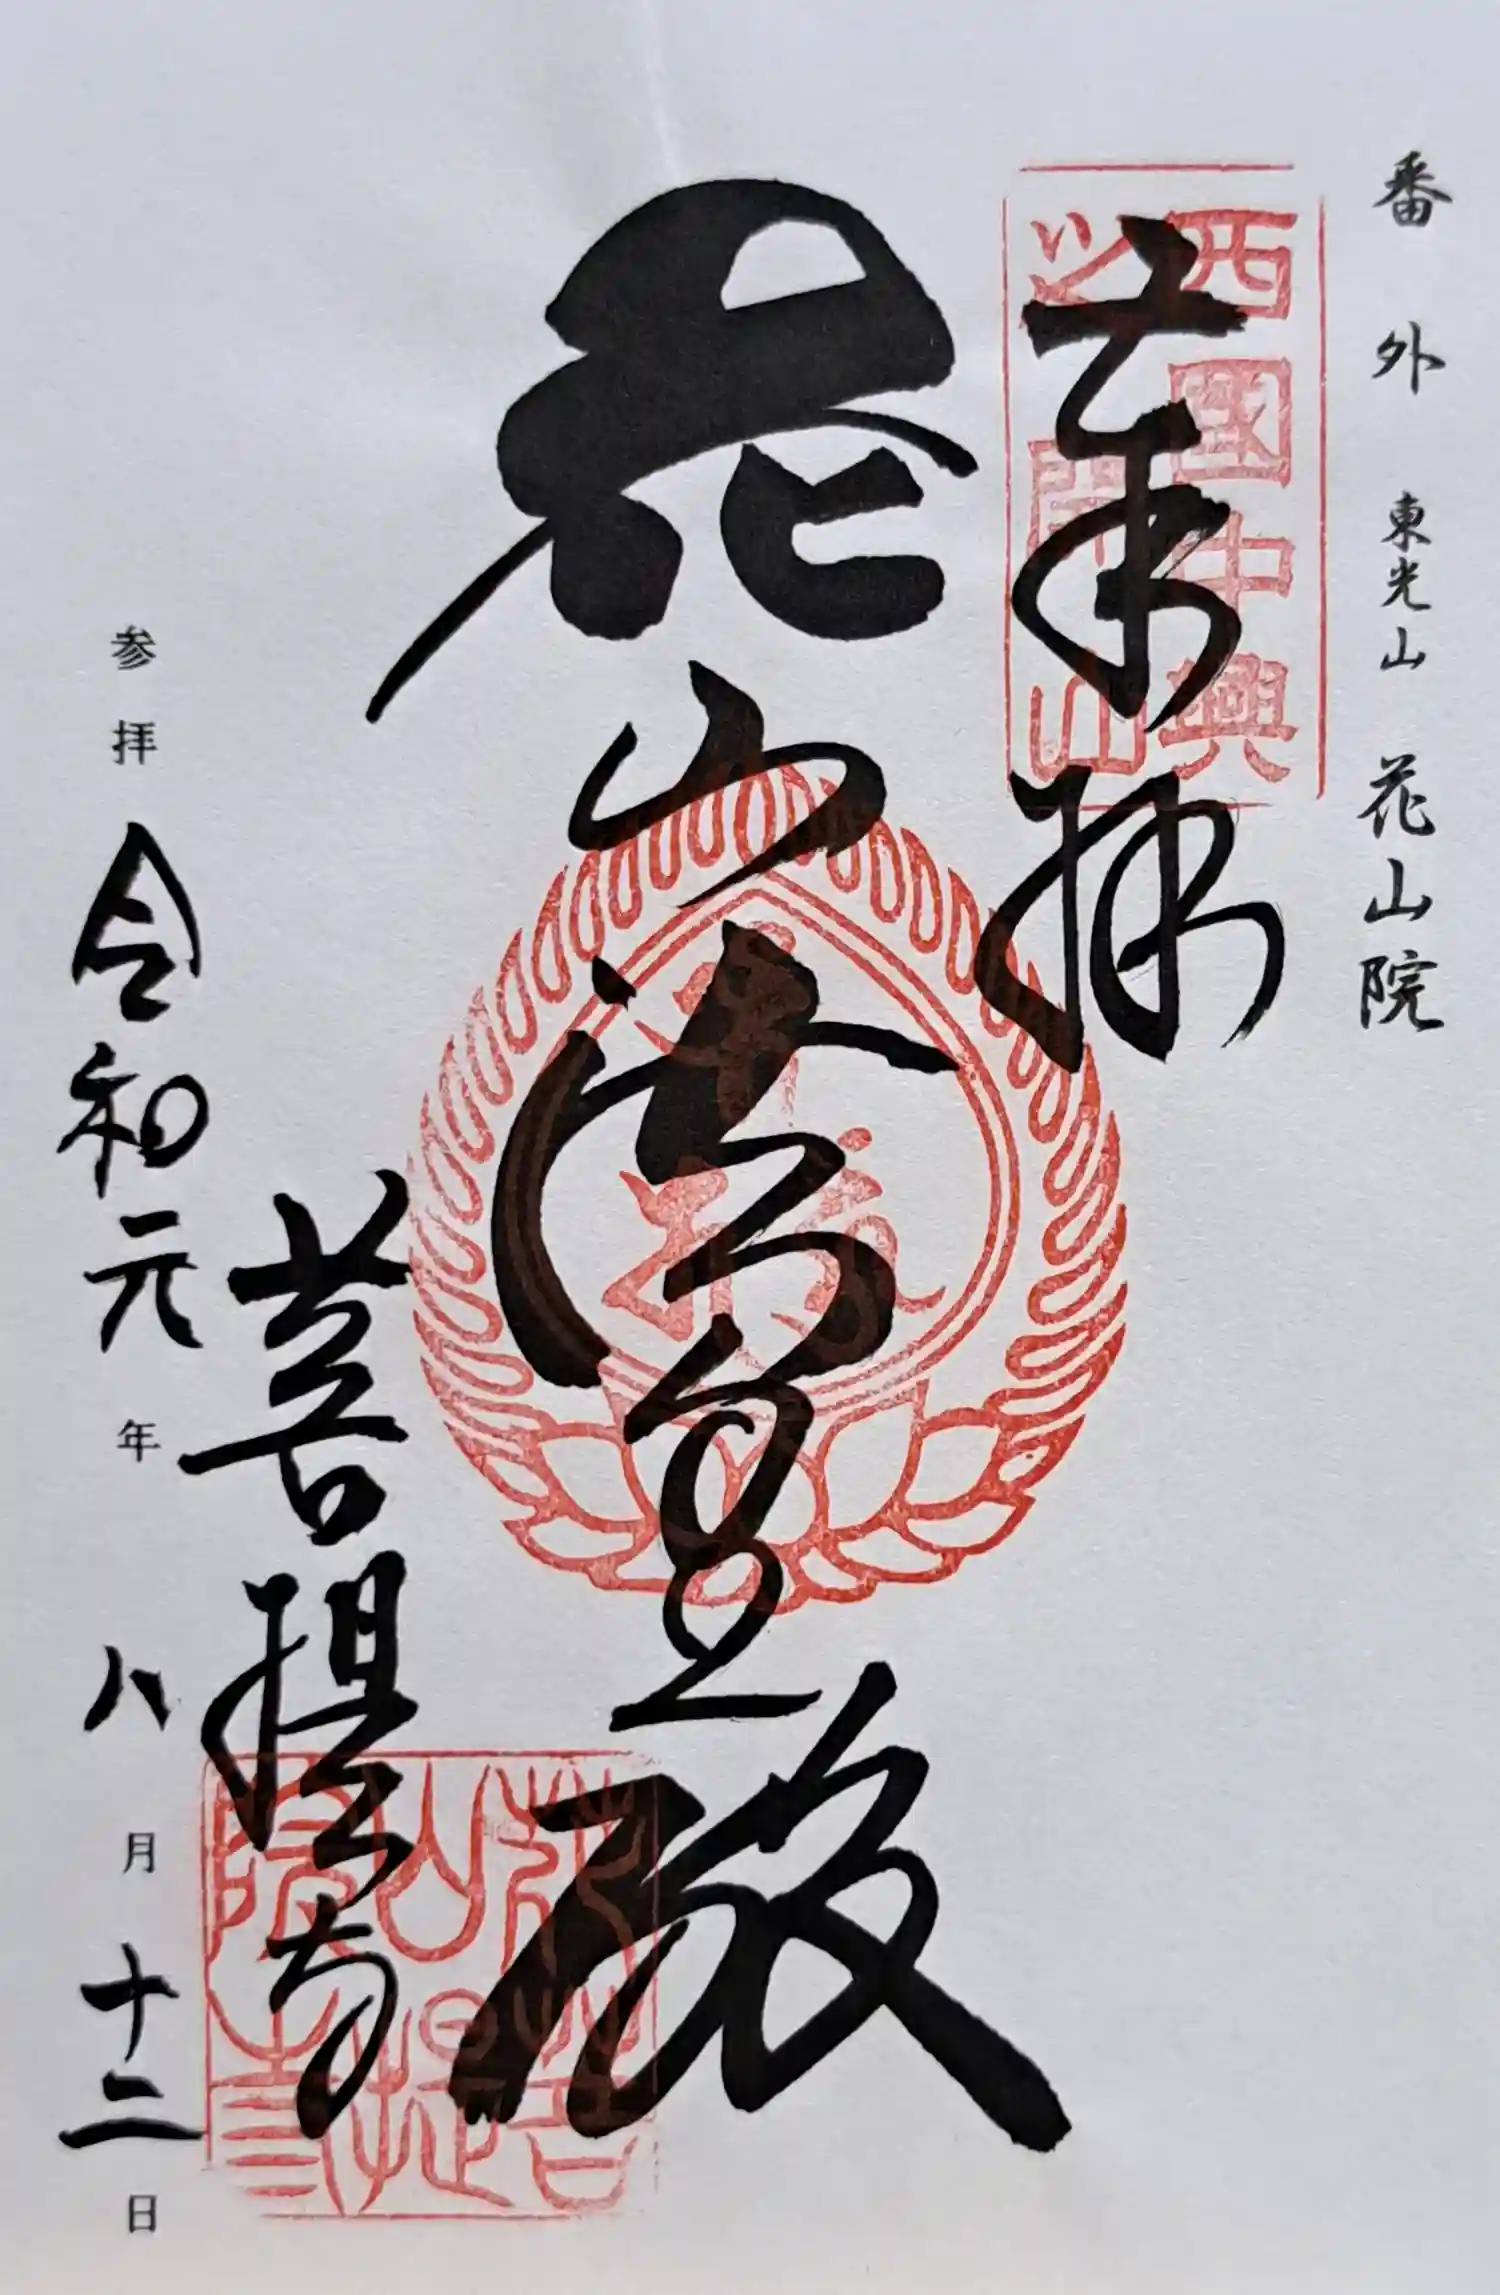 番外 東光山 花山院
西國中興
之開山
奉拝
花山法皇殿
菩提寺
花山院
菩提寺
参拝 令和元年八月十二日